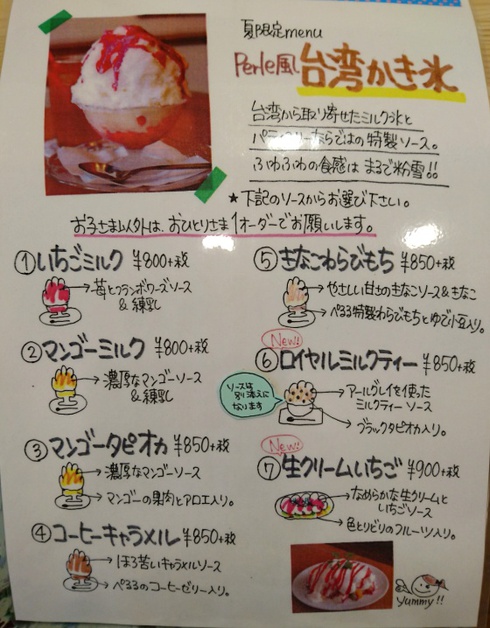 夏限定menu
Perle風 台湾かき氷
台湾から取り寄せたミルク氷と
パティスリーならではの特製ソース。
ふわふわの食感はまるで粉雪!!
★下記のソースからお選び下さい。
お子さま以外は、おひとりさま1オーダーでお願いします。
①いちごミルク ¥800+税
苺とフランボワーズソース
&練乳
②マンゴーミルク ¥800+税
濃厚なマンゴーソース
&練乳
③マンゴータピオカ ¥850+税
濃厚なマンゴーソース
マンゴーの果肉とアロエ入り。
④コーヒーキャラメル ¥850+税
ほろ苦いキャラメルソース
ぺるるのコーヒーゼリー入り。
⑤きなこわらびもち ¥850+税
やさしい甘さのきなこソース&きなこ
ぺるる特製わらびもちとゆで小豆入り。
New!!
⑥ロイヤルミルクティー ¥850+税
ソースは
別添えに
なります
アールグレイを使った
ミルクティーソース
ブラックタピオカ入り。
New!!
⑦生クリームいちご ¥900+税
なめらかな生クリームと
いちごソース
色とりどりのフルーツ入り。
yummy!!